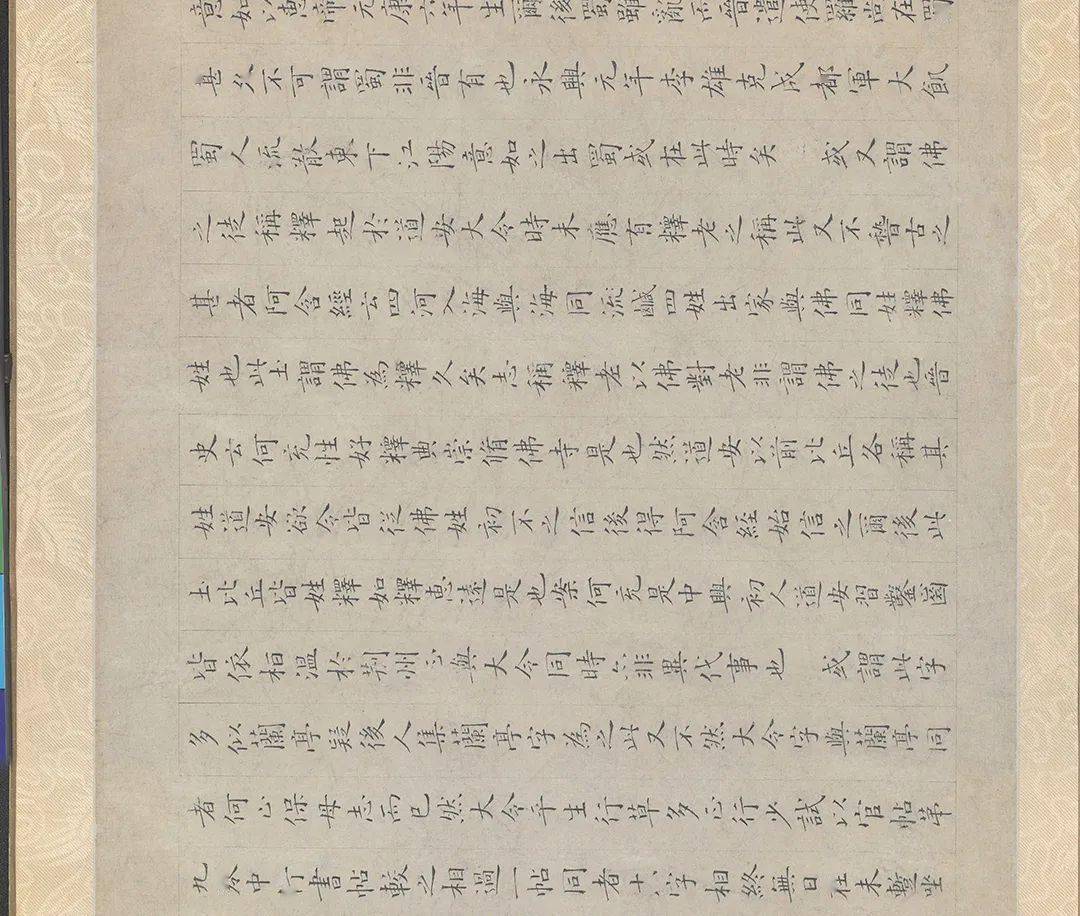 意如以惠帝元康六年生爾後蜀雖亂而晉遣使羅尚在蜀
甚久不可謂蜀非晉有也永興元年李雄克成都軍大飢
蜀人流散東下江陽意如之出蜀或在此時矣 或又謂佛
之徒稱釋起於道安大令時未應有釋老之稱此又不稽古之
甚者阿含經云四河入海與海同流鹹四姓出家與佛同姓釋佛
姓也此土謂佛為釋久矣志稱釋老以佛對老非謂佛之徒也晉
史云何充性好釋典崇脩佛寺是也然道安以前比丘各稱其
姓道安欲令皆從佛姓初不之信後得阿含經始信之爾後此
土比丘皆姓釋如釋惠遠是也案何充是中興初人道安習鑿齒
皆依桓溫於荊州正與大令同時亦非異代事也 或謂此字
多似蘭亭疑後人集蘭亭字為之此又不然大令字與蘭亭同
者何止保母志而已然大令平生行草多正行少試以官帖第
九中行書帖較之相過一帖同者十八字相終無日在未蹔坐